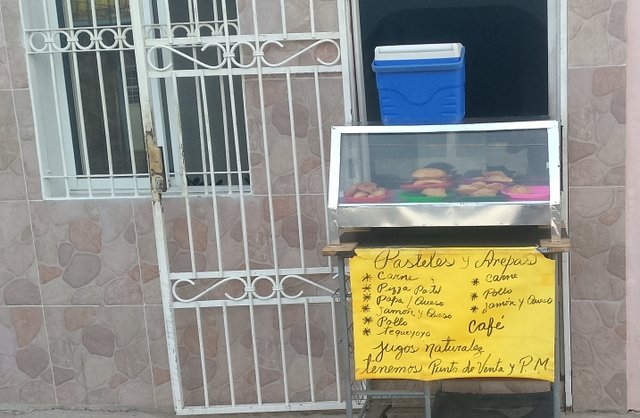 Pasteles y Arepas
* Carne
* Pizza
* Papa/Queso
* Jamón y Queso
* Pollo
* Tequeyoyo
* Carne
* Pollo
* Jamón y Queso
Café
Jugos Naturales
tenemos Punto de Venta y P.M